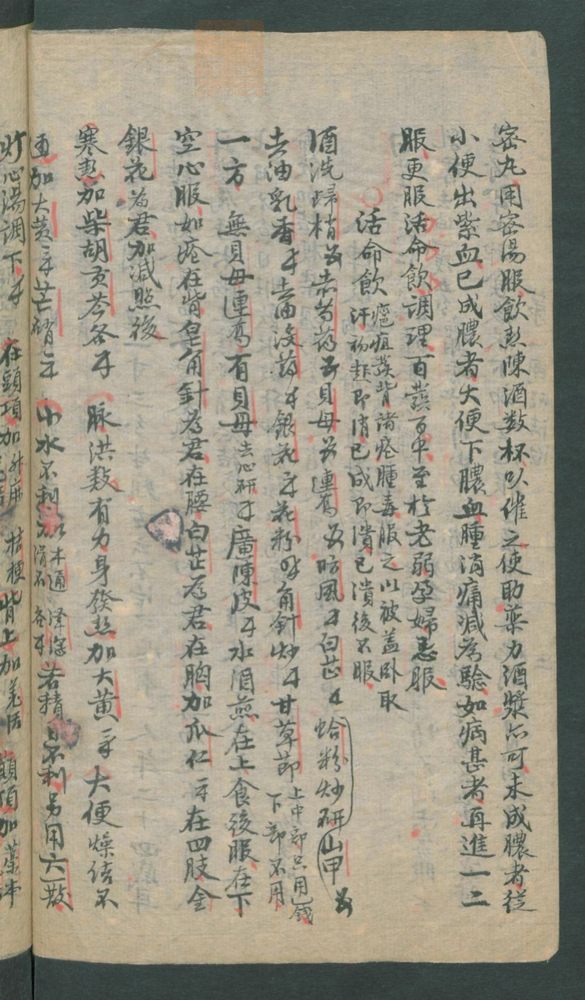 蜜丸用蜜湯服飲熱陳酒数杯以催之使助藥力酒漿亦可未成膿者從
小便出紫血已成膿者大便下膿血腫消痛減為驗如病甚者再進一二
服更服活命飲調理百發百中至於老弱孕婦忌服
〇活命飲 癰疽發背諸瘡腫毒服之以被盖卧取
汗初起即消已成即潰已潰後不服
酒洗歸梢 赤芍藥 貝母 連喬 防風 白芷 蛤粉炒研山甲
去油乳香 去油沒药 銀花 花粉 角針炒 甘草節 上中部只用
下部不用
一方 無貝母連喬有貝母去心研 廣陳皮 水酒煎在上食後服在下
空心服如瘡在背皂角針為君在腰白芷為君在胸加瓜仁 在四肢金
銀花為君加減照後
寒熱加柴胡黃芩各 脉洪数有力身發熱加大黃 大便燥結不
通加大黃 芒硝 小水不利加木通澤瀉各 若精 不利另用六一散
灯心湯調下 在頭項加升麻 桔梗 背上加羌活 頭頂加藁本